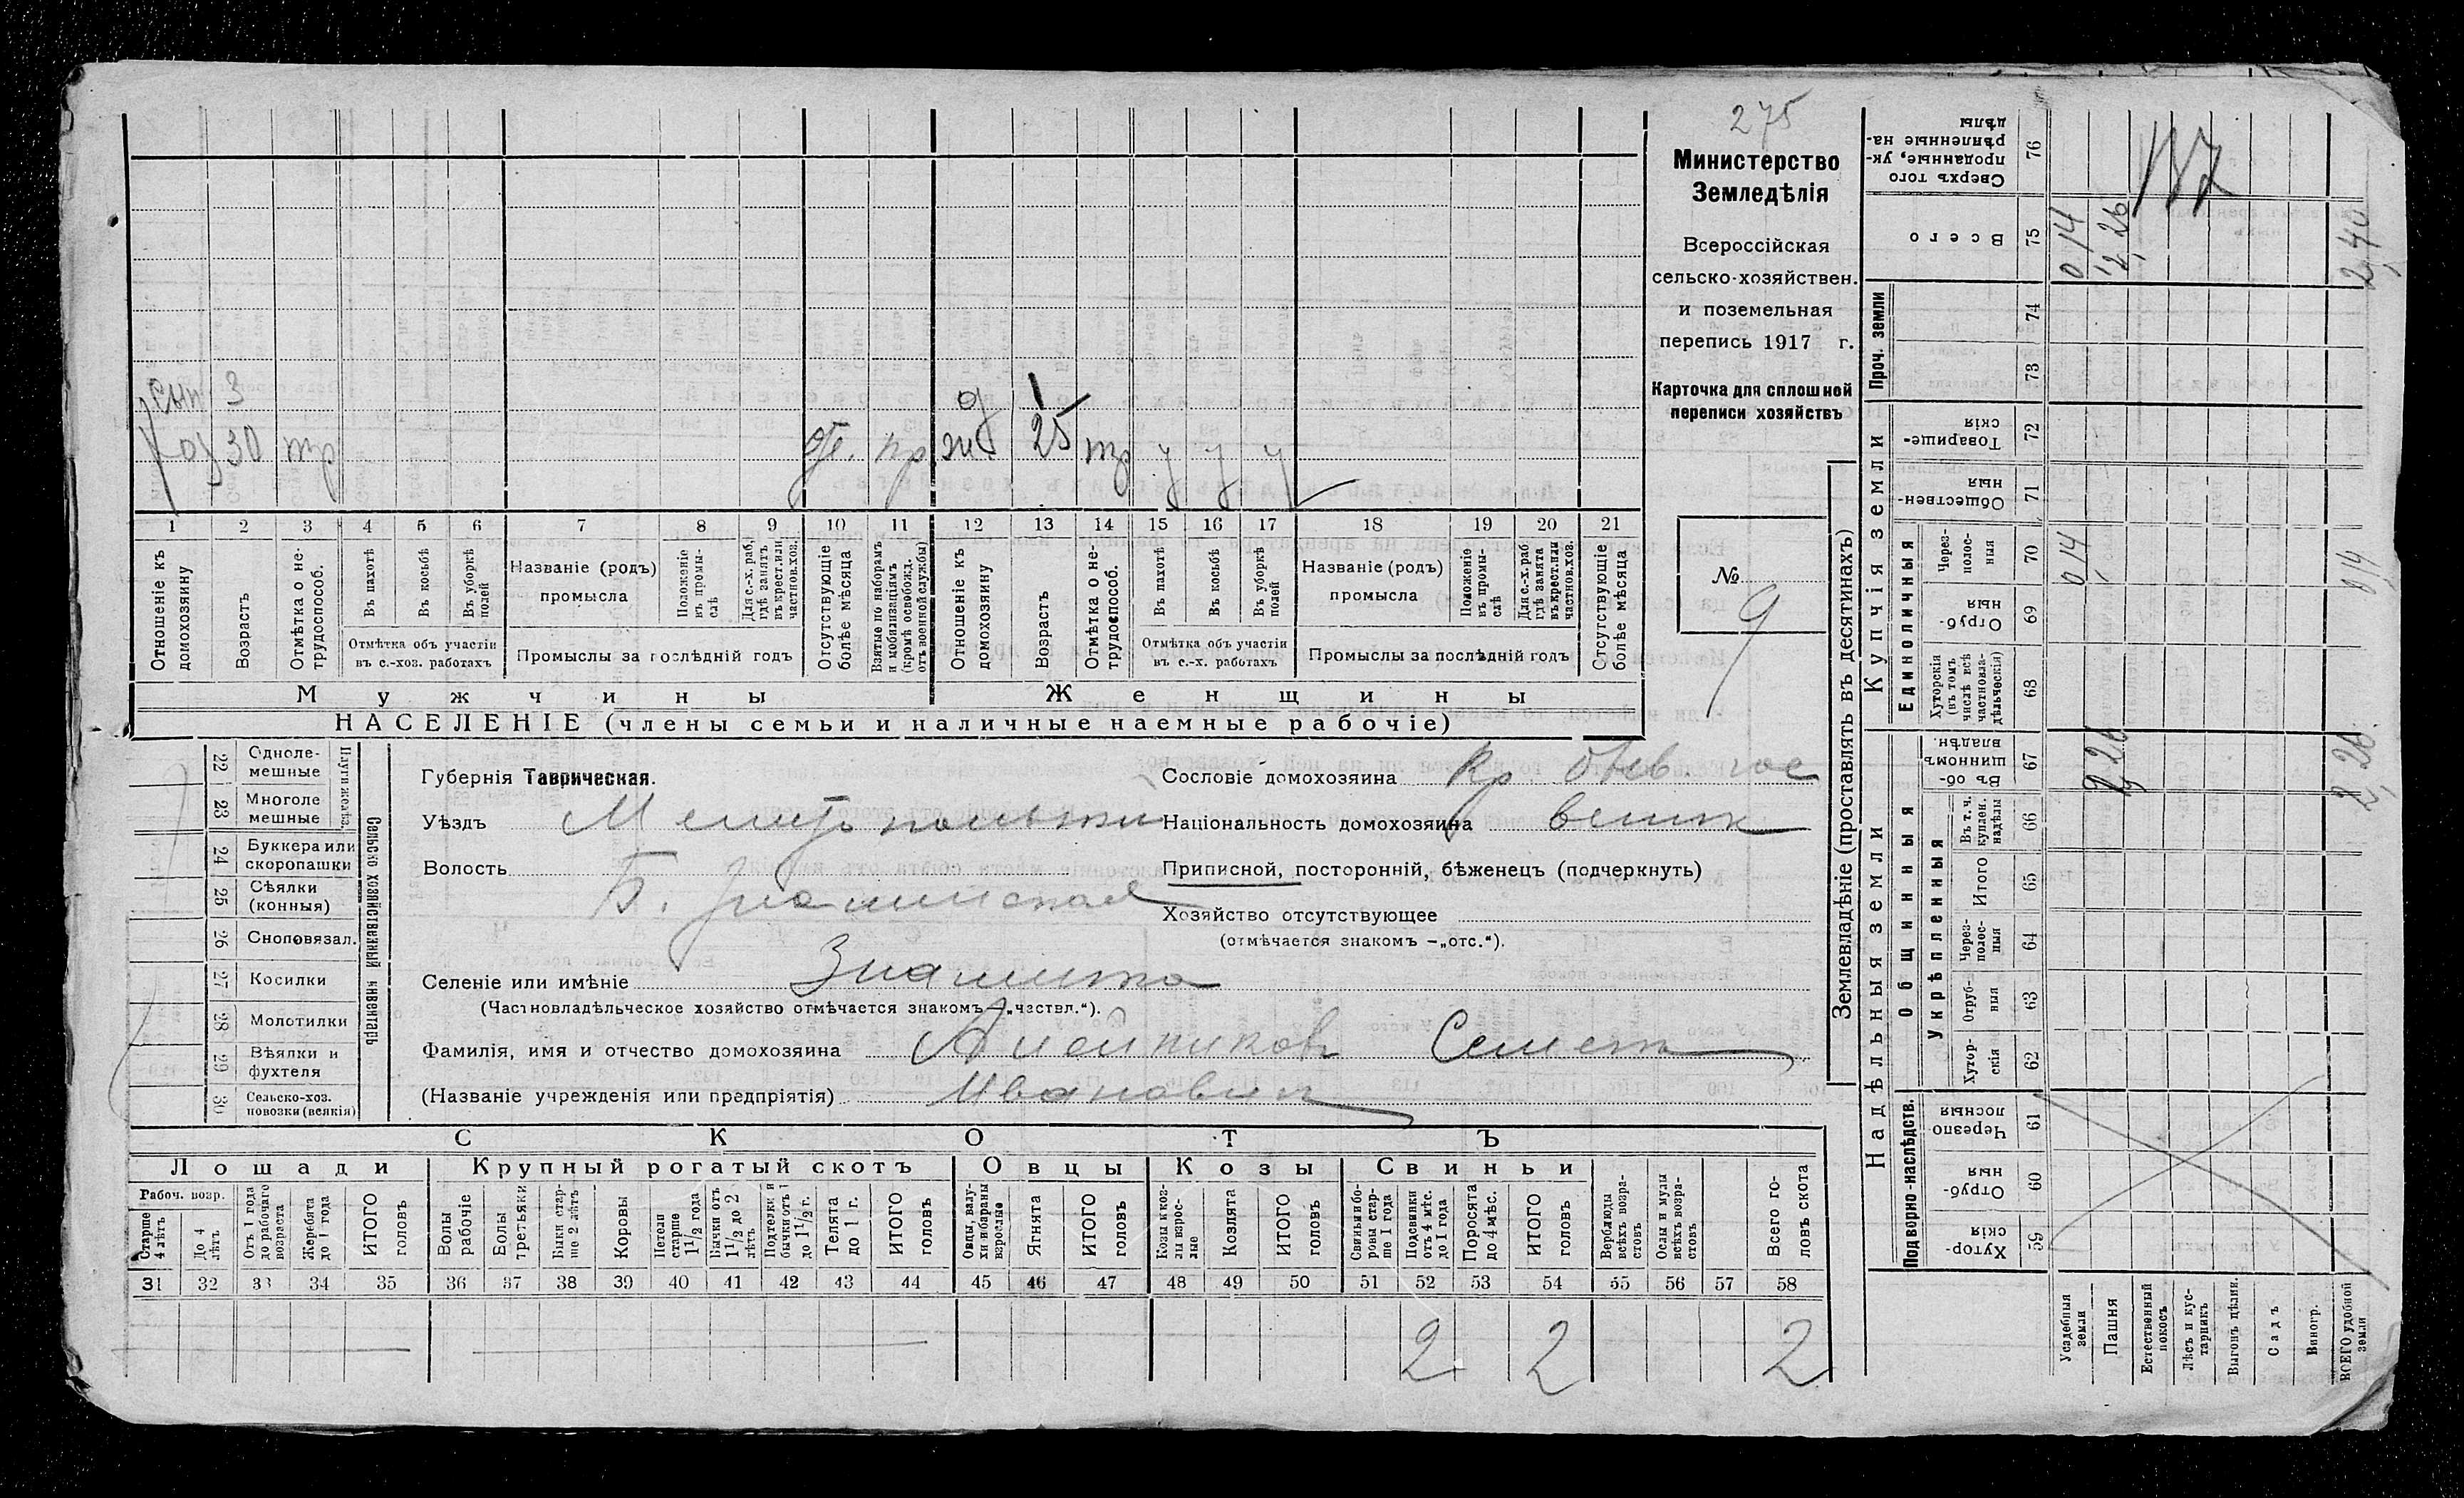 275
Министерство
Земледѣлія
Всероссійская
сельско-хозяйствен.
и поземельная
перепись 1917 г.
Карточка для сплошной
переписи хозяйствъ
№ 9
сын 3 д 1
хоз 30 тр от. пр ж. 25 тр у у у
1 2 3 4 5 6 7 8 9 10 11 12 13 14 15 16 17 18 19 20 21
Отношеніе къ домохозяину
Возрастъ
Отмѣтка о не-трудоспособ.
Въ пахотѣ
Въ косьбѣ
Въ уборкѣ полей
Отмѣтка объ участіи
въ с.-хоз. работахъ
Названіе (родъ)
промысла
Положеніе въ промы-слѣ
Для с.-х. раб. гдѣ занятъ въ крест. или частнов. хоз.
Промыслы за послѣдній годъ
Отсутствующіе болѣе мѣсяца
Взятые по наборамъ и мобилизаціямъ (кромѣ освобожд. отъ военной службы)
Отношеніе къ домохозяину
Возрастъ
Отмѣтка о не-трудоспособ.
Въ пахотѣ
Въ косьбѣ
Въ уборкѣ полей
Отмѣтка объ участіи
въ с.-х. работахъ
Названіе (родъ)
промысла
Положеніе въ промы-слѣ
Для с.-х. раб. гдѣ занята въ крест. или частнов. хоз.
Промыслы за послѣдній годъ
Отсутствующіе болѣе мѣсяца
Мужчины Женщины
НАСЕЛЕНІЕ (члены семьи и наличные наемные рабочіе)
22 Одноле-мешные
23 Многоле мешные
Плуги желѣз.
24 Буккера или скоропашки
25 Сѣялки (конныя)
26 Сноповязал.
27 Косилки
28 Молотилки
29 Вѣялки и фухтеля
30 Сельско-хоз. повозки (всякія)
Сельско хозяйственный инвентарь
Губернія Таврическая.
Уѣздъ Мелитопольскій
Волость Б. Знаменская
Селеніе или имѣніе Знаменка
(Частновладѣльческое хозяйство отмѣчается знакомъ—„частвл.“).
Фамилія, имя и отчество домохозяина Семен
(Названіе учрежденія или предпріятія) Иванович
Сословіе домохозяина Кр
Національность домохозяина велик
Приписной, посторонній, бѣженецъ (подчеркнуть)
Хозяйство отсутствующее
(отмѣчается знакомъ —„отс.“).
СКОТЪ
Лошади Крупный рогатый скотъ Овцы Козы Свиньи
Рабоч. возр.
Старше 4 лѣтъ
До 4 лѣтъ
Отъ 1 года до рабочаго возраста
Жеребята до 1 года
ИТОГО головъ
Волы рабочіе
Волы третьяки
Быки стар-ше 2 лѣтъ
Коровы
Нетели старше 1 1/2 года
Бычки отъ 1 1/2 до 2 лѣтъ
Подтелки и бычки отъ 1 до 1 1/2 г.
Телята до 1 г.
ИТОГО головъ
Овцы, валу-хи и бараны взрослые
Ягнята
ИТОГО головъ
Козы и коз-лы взрос-лые
Козлята
ИТОГО головъ
Свиньи и бо-ровы стар-ше 1 года
Подсвинки отъ 4 мѣс. до 1 года
Поросята до 4 мѣс.
ИТОГО головъ
Верблюды всѣхъ возра-стовъ
Ослы и мулы всѣхъ возра-стовъ
Всего го-ловъ скота
31 32 33 34 35 36 37 38 39 40 41 42 43 44 45 46 47 48 49 50 51 52 53 54 55 56 57 58
2 2 2
Землевладѣніе (проставлять въ десятинахъ)
Сверхъ того проданные, ук-рѣпленные на-дѣлы 76
137
Всего 75 0,14 2,26 2,40
Проч. земли 74 73
Купчія земли
Товарище-скія 72
Обществен-ныя 71
Единоличныя
Через-полос-ныя 70 0,14 0,14
Отруб-ныя 69
Хуторскія (въ томъ числѣ всѣ частновла-дѣльческія) 68
Надѣльныя земли
Общинныя
Въ об-щинномъ владѣн. 67 2,26 2,26
Укрѣпленныя
Въ т. ч. куплен. надѣлы 66
Итого 65
Через-полос-ныя 64
Отруб-ныя 63
Хутор-скія 62
Подворно-наслѣдств.
Черезпо лосныя 61
Отруб-ныя 60
Хутор-скія 59
Усадебныя земли
Пашня
Естественный покосъ
Лѣсъ и кус-тарникъ
Выгонъ цѣлин.
Садъ
Виногр.
ВСЕГО удобной земли